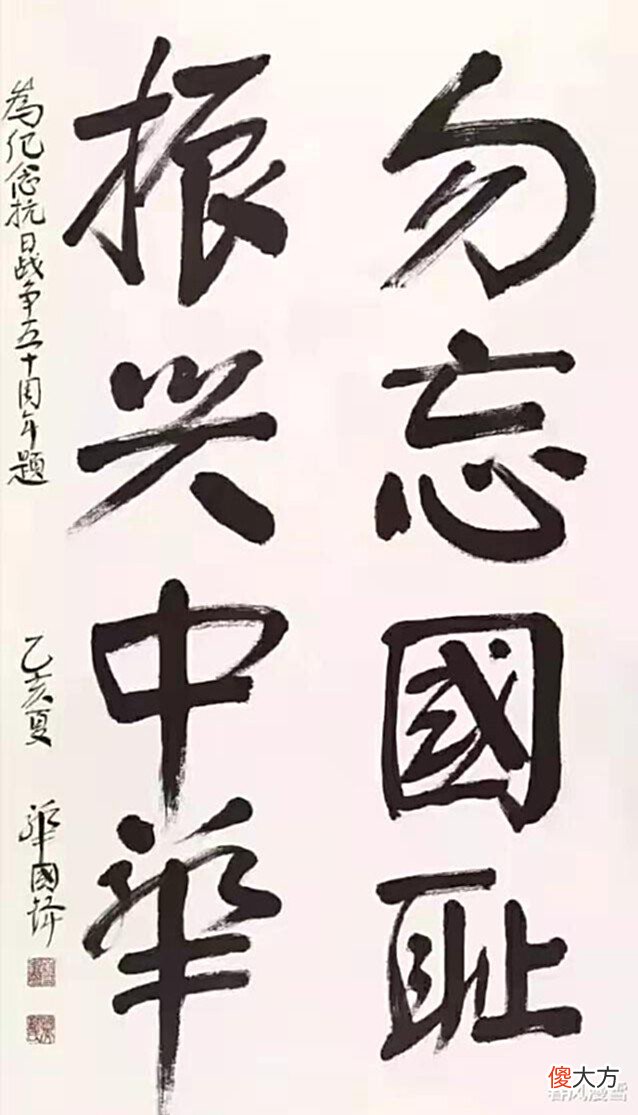 勿忘國耻
振兴中華
為纪念抗日战争五十周年题
乙亥夏 華國锋
傻大方